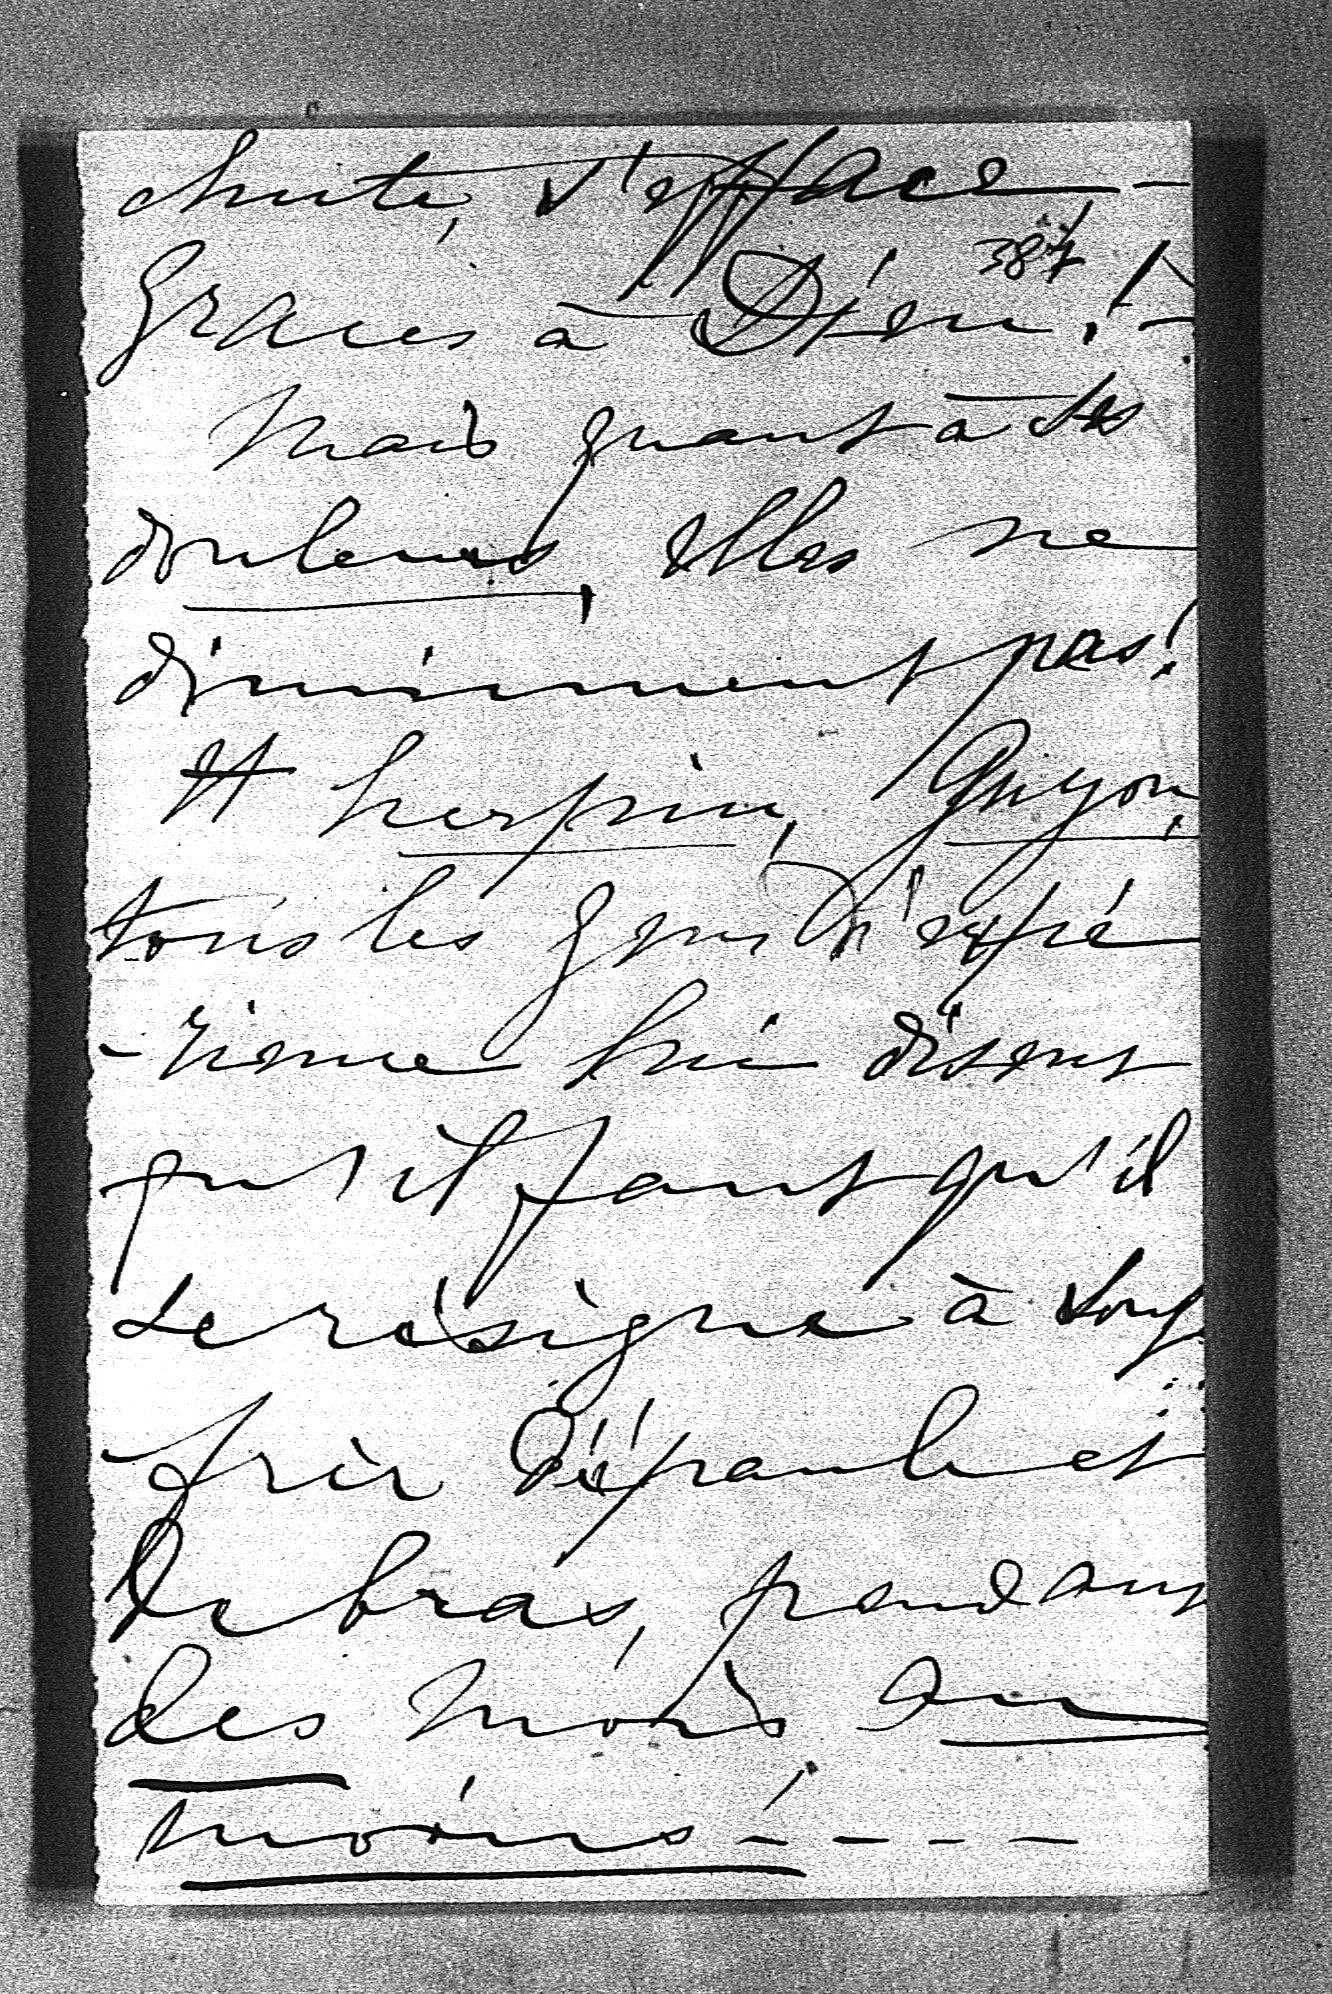 chute, s'efface —
387
Graces à Dieu! —
Mais quant à ses
douleurs, elles ne
diminuent pas!
Et herpin, Guyon,
tous les gens d'expé
-rience lui disent
qu'il faut qu'il
se résigne à souf
-frir de l'épaule et
du bras, pendant
des mois, au
moins! - - - -